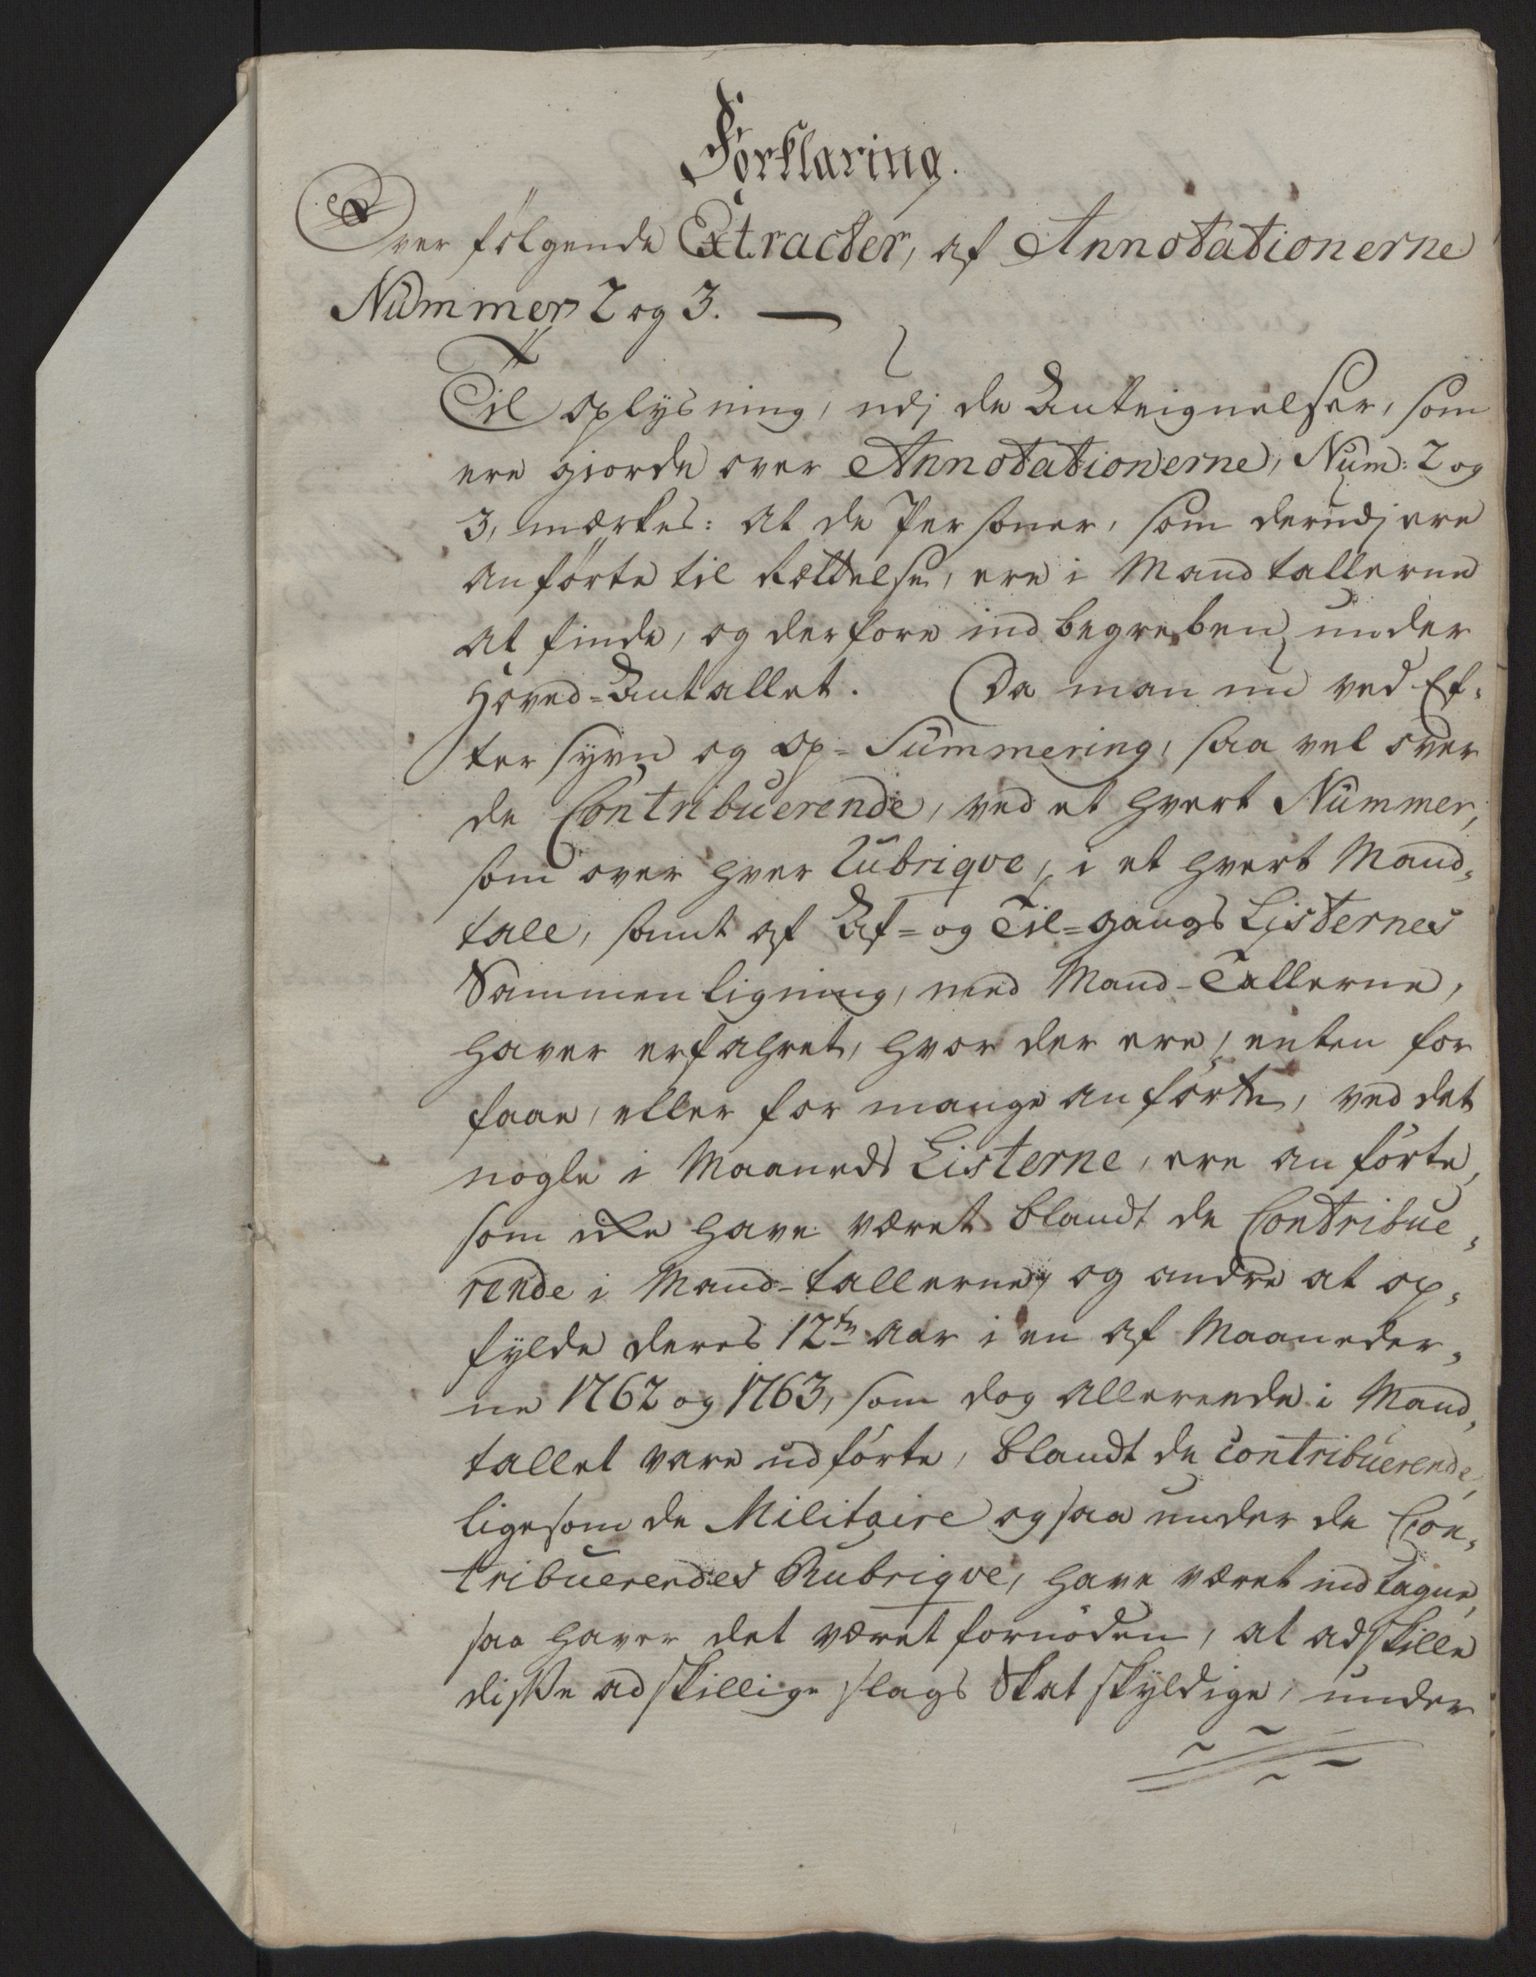 Forklaring.
Over følgende Extracter, af Annotationerne
Nummer 2 og 3. —
Til oplysning, udj de Anteignelser, som
ere giorde over Annotationerne, Num: 2 og
3, mærkes: at de Personer, som derudj ere
anførte til Rættelse, ere i Mandtallerne
at finde, og derfore indbegreben under
Hoved-Antallet. Da man nu ved Ef-
tersyn og op-Summering, saa vel over
de Contribuerende, ved et hvert Nummer,
som over hver Rubriqve, i et hvert Mand-
tall, samt af Af- og Til-gangs Listernes
Sammenligning, med Mand-Tallerne,
haver erfahret, hvor der ere, enten for
faae, eller for mange anførte, ved det
nogle i Maaneds Listerne, ere anførte,
som ikke have været blandt de Contribue-
rende i Mand-tallerne, og andre at op-
fylde deres 12te Aar i en af Maaneder-
ne 1762 og 1763, som dog allereede i Mand-
tallet vare udførte, blandt de contribuerende,
ligesom de Militaire ogsaa under de Con-
tribuerendes Rubriqve, have været indtagne,
saa haver det været fornøden, at adskille
disse adskillige slags Skatskyldige, under